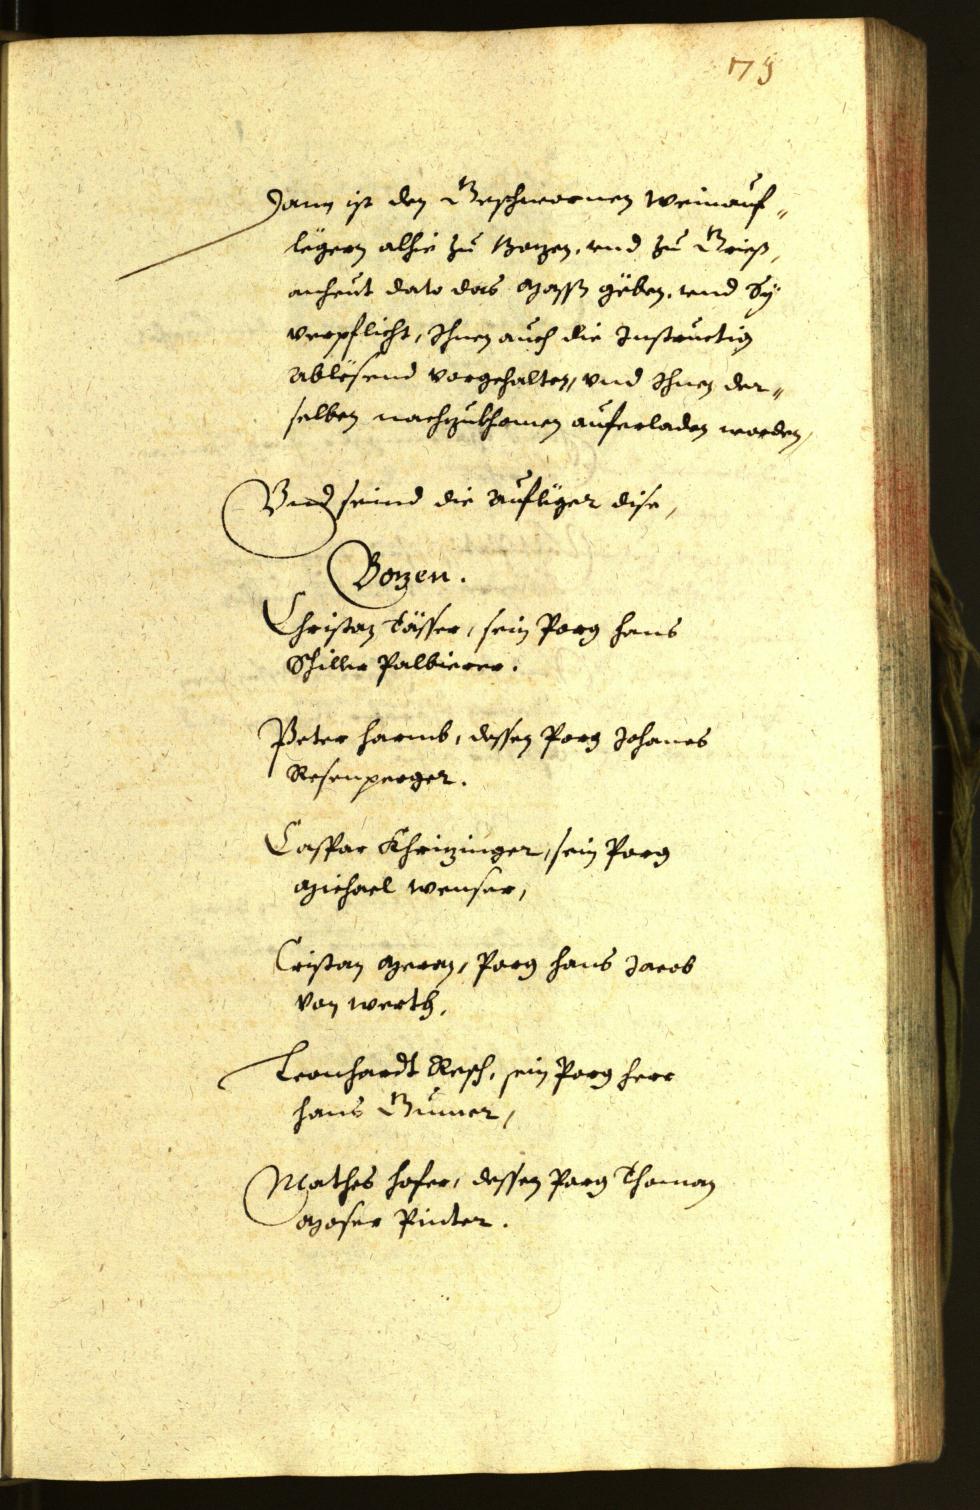 175
Dann ist den Geschwornen Weinauf„
legern alhie zu Botzen, vnd zu Grieß,
anheut dato das Mass geben, vnd Sy
verpflicht, Ihnen auch die Instruction
ablesend vorgehalten, vnd Ihnen der„
selben nachzukhomen auferladen worden,
Vnd seind die Aufleger dise,
Botzen.
Christan Tässer, sein Porg Hans
Schiller Palbierer.
Peter Harmb, dessen Porg Johanes
Resenperger.
Caspar Khrinzinger, sein Porg
Michael Wenser,
Cristan Meran, Porg Hans Jacob
von Werth,
Leonhardt Resch, sein Porg Herr
Hans Gumer,
Mathes Hofer, dessen Porg Thoman
Moser Pinter.